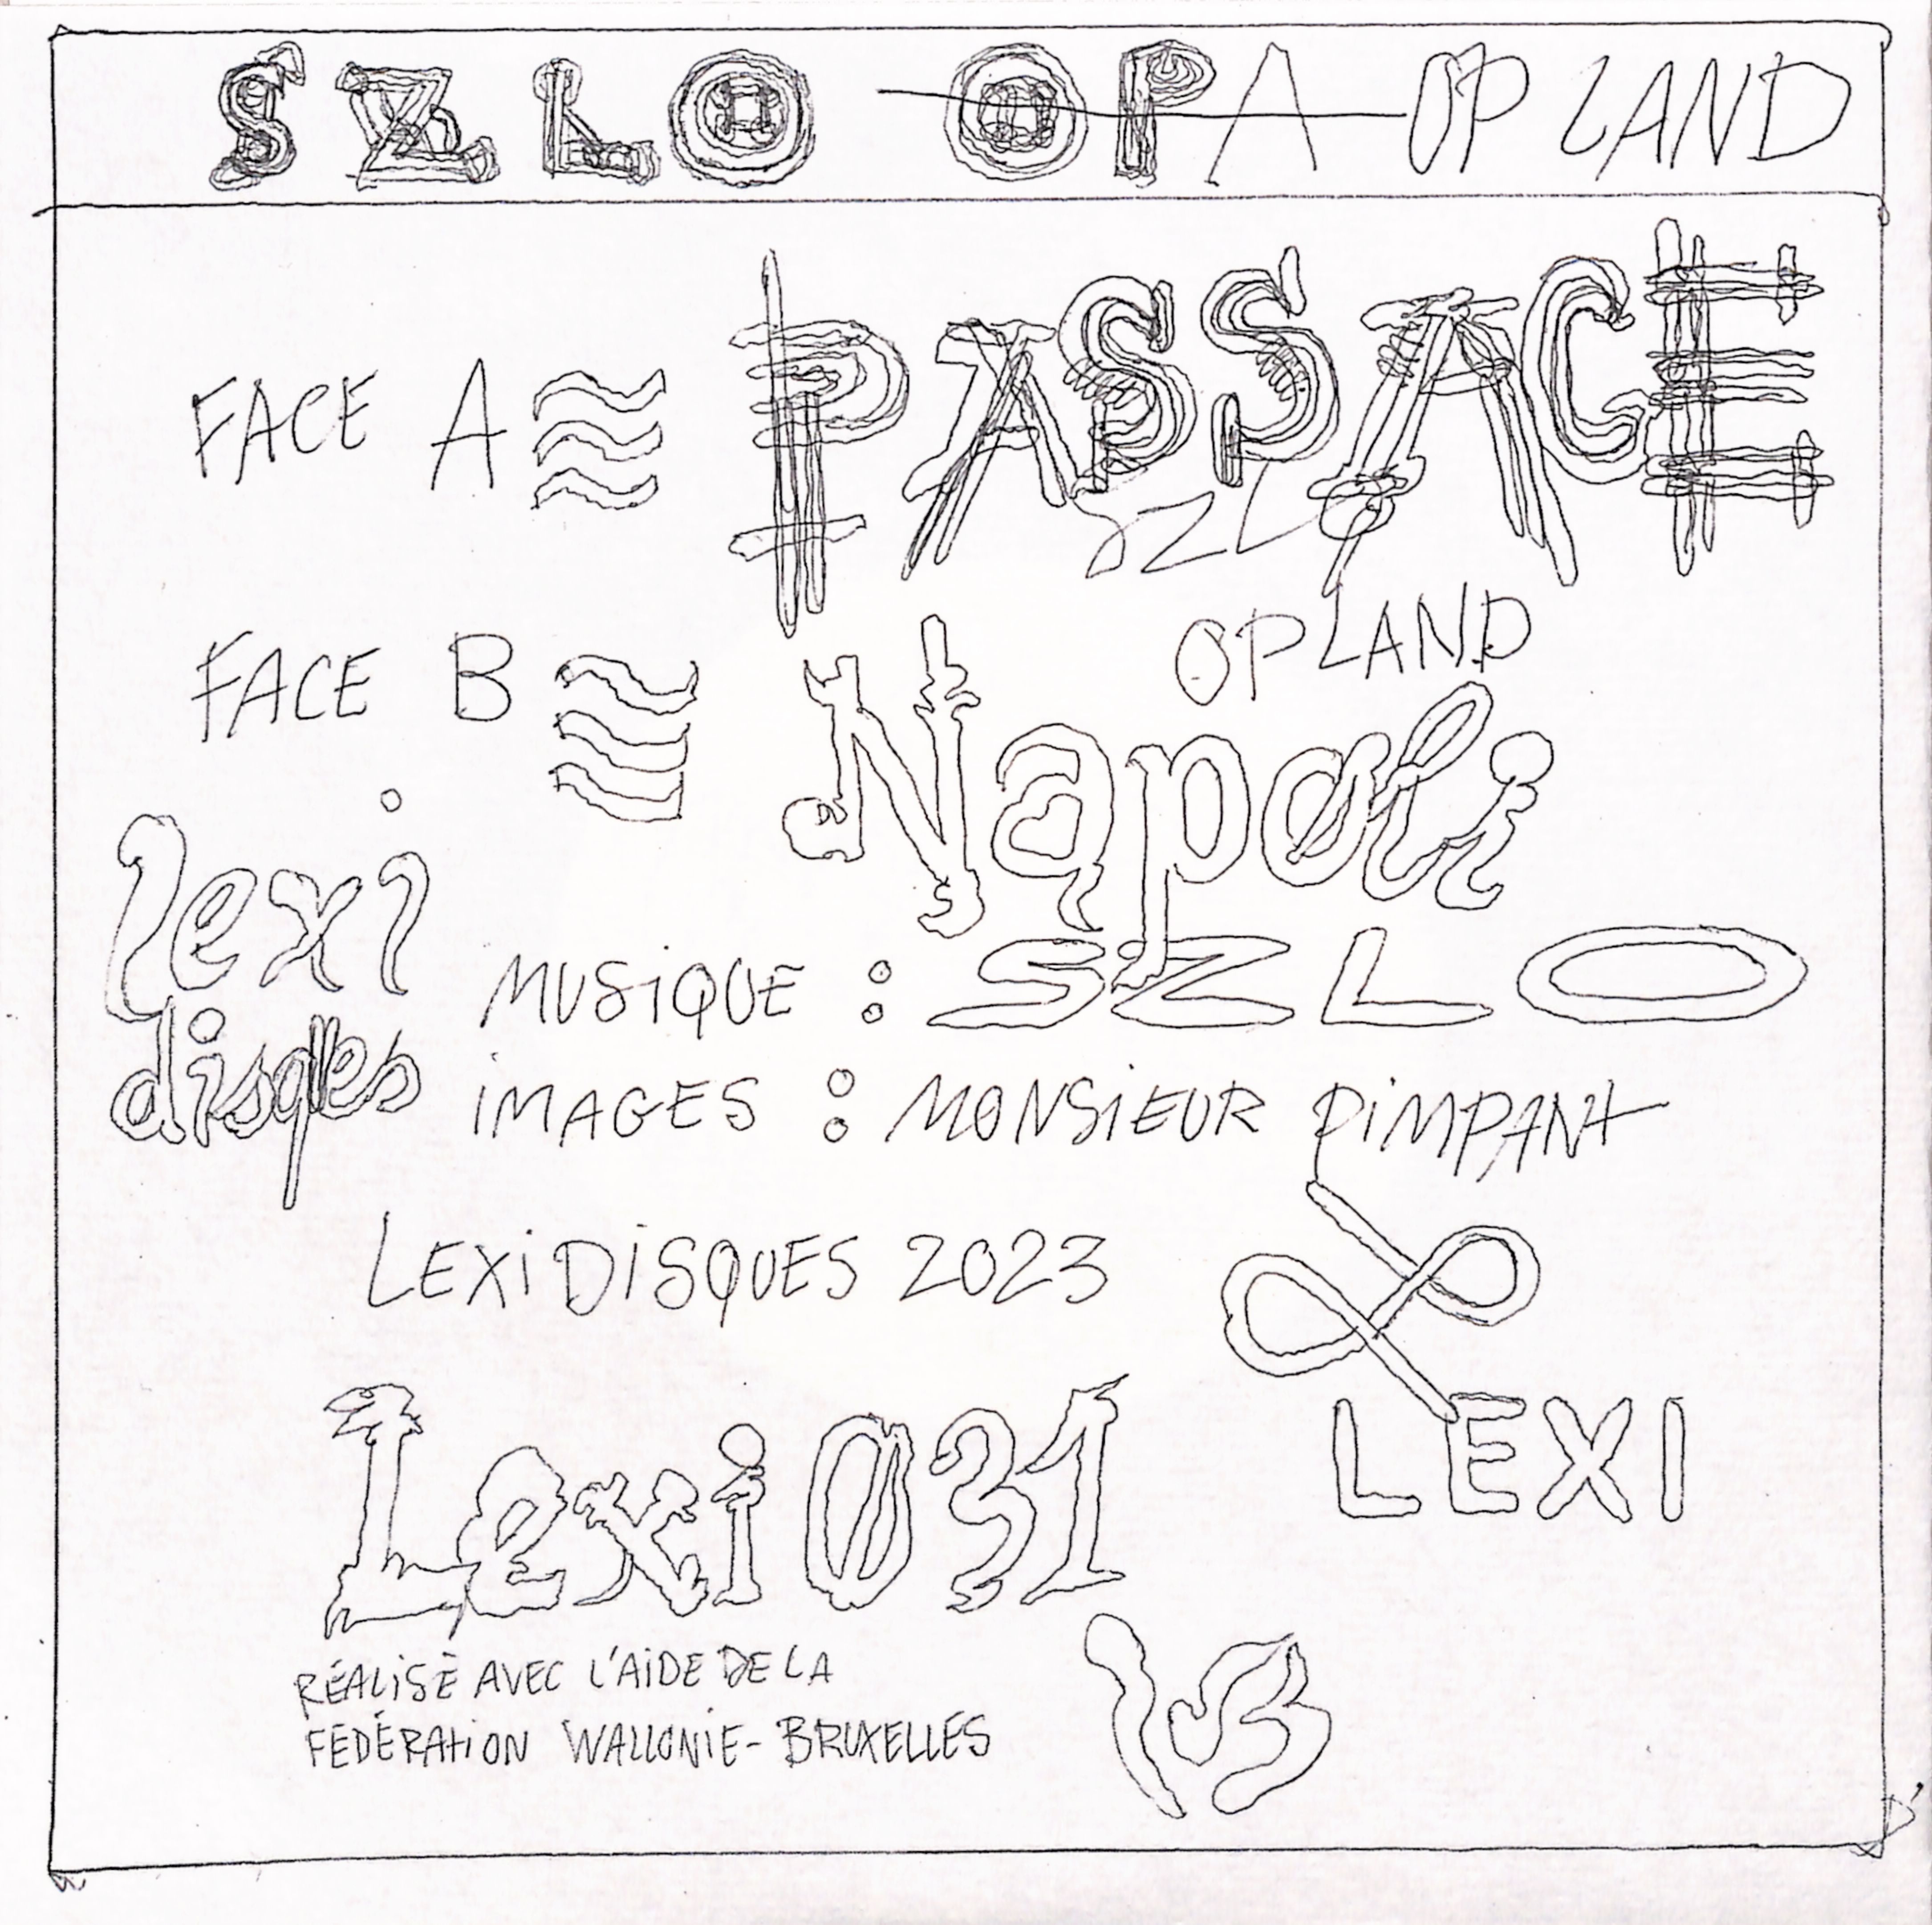 SZLO OPA OP LAND
FACE A PASSAGE
SZLO
OPLAND
FACE B Napoli
lexi
disques
MUSIQUE : SZLO
IMAGES : MONSIEUR PIMPANT
LEXIDISQUES 2023
LEXI
Lexi 031
RÉALISÉ AVEC L'AIDE DE LA
FÉDÉRATION WALLONIE-BRUXELLES